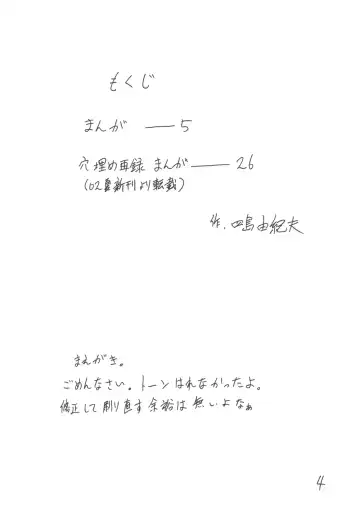 もくじ
まんが ── 5
穴埋め再録 まんが ── 26
(02夏新刊より転載)
作.四島由紀夫
まえがき。
ごめんなさい。トーンはれなかったよ。
修正して刷り直す余裕は無いよなぁ
4